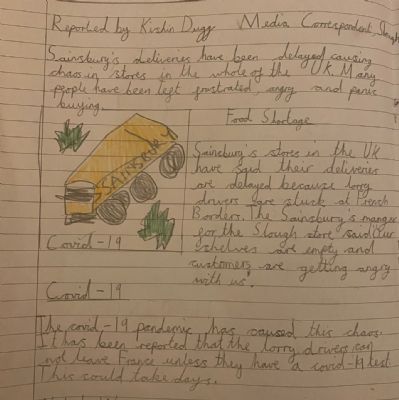 Reported by Kirshin Dugg Media Correspondent, Slough
Sainsbury's deliveries have been delayed causing
chaos in stores in the whole of the UK. Many
people have been left frustrated, angry and panic
buying.
Food Shortage
SAINSBURY
Sainsbury's stores in the UK
have said their deliveries
are delayed because lorry
drivers are stuck at French
Borders. The Sainsbury's manger
for the Slough store said "Our
shelves are empty and
customers are getting angry
with us".
Covid-19
Covid-19
The covid-19 pandemic has caused this chaos.
It has been reported that the lorry drivers can
not leave France unless they have a covid-19 test
This could take days.